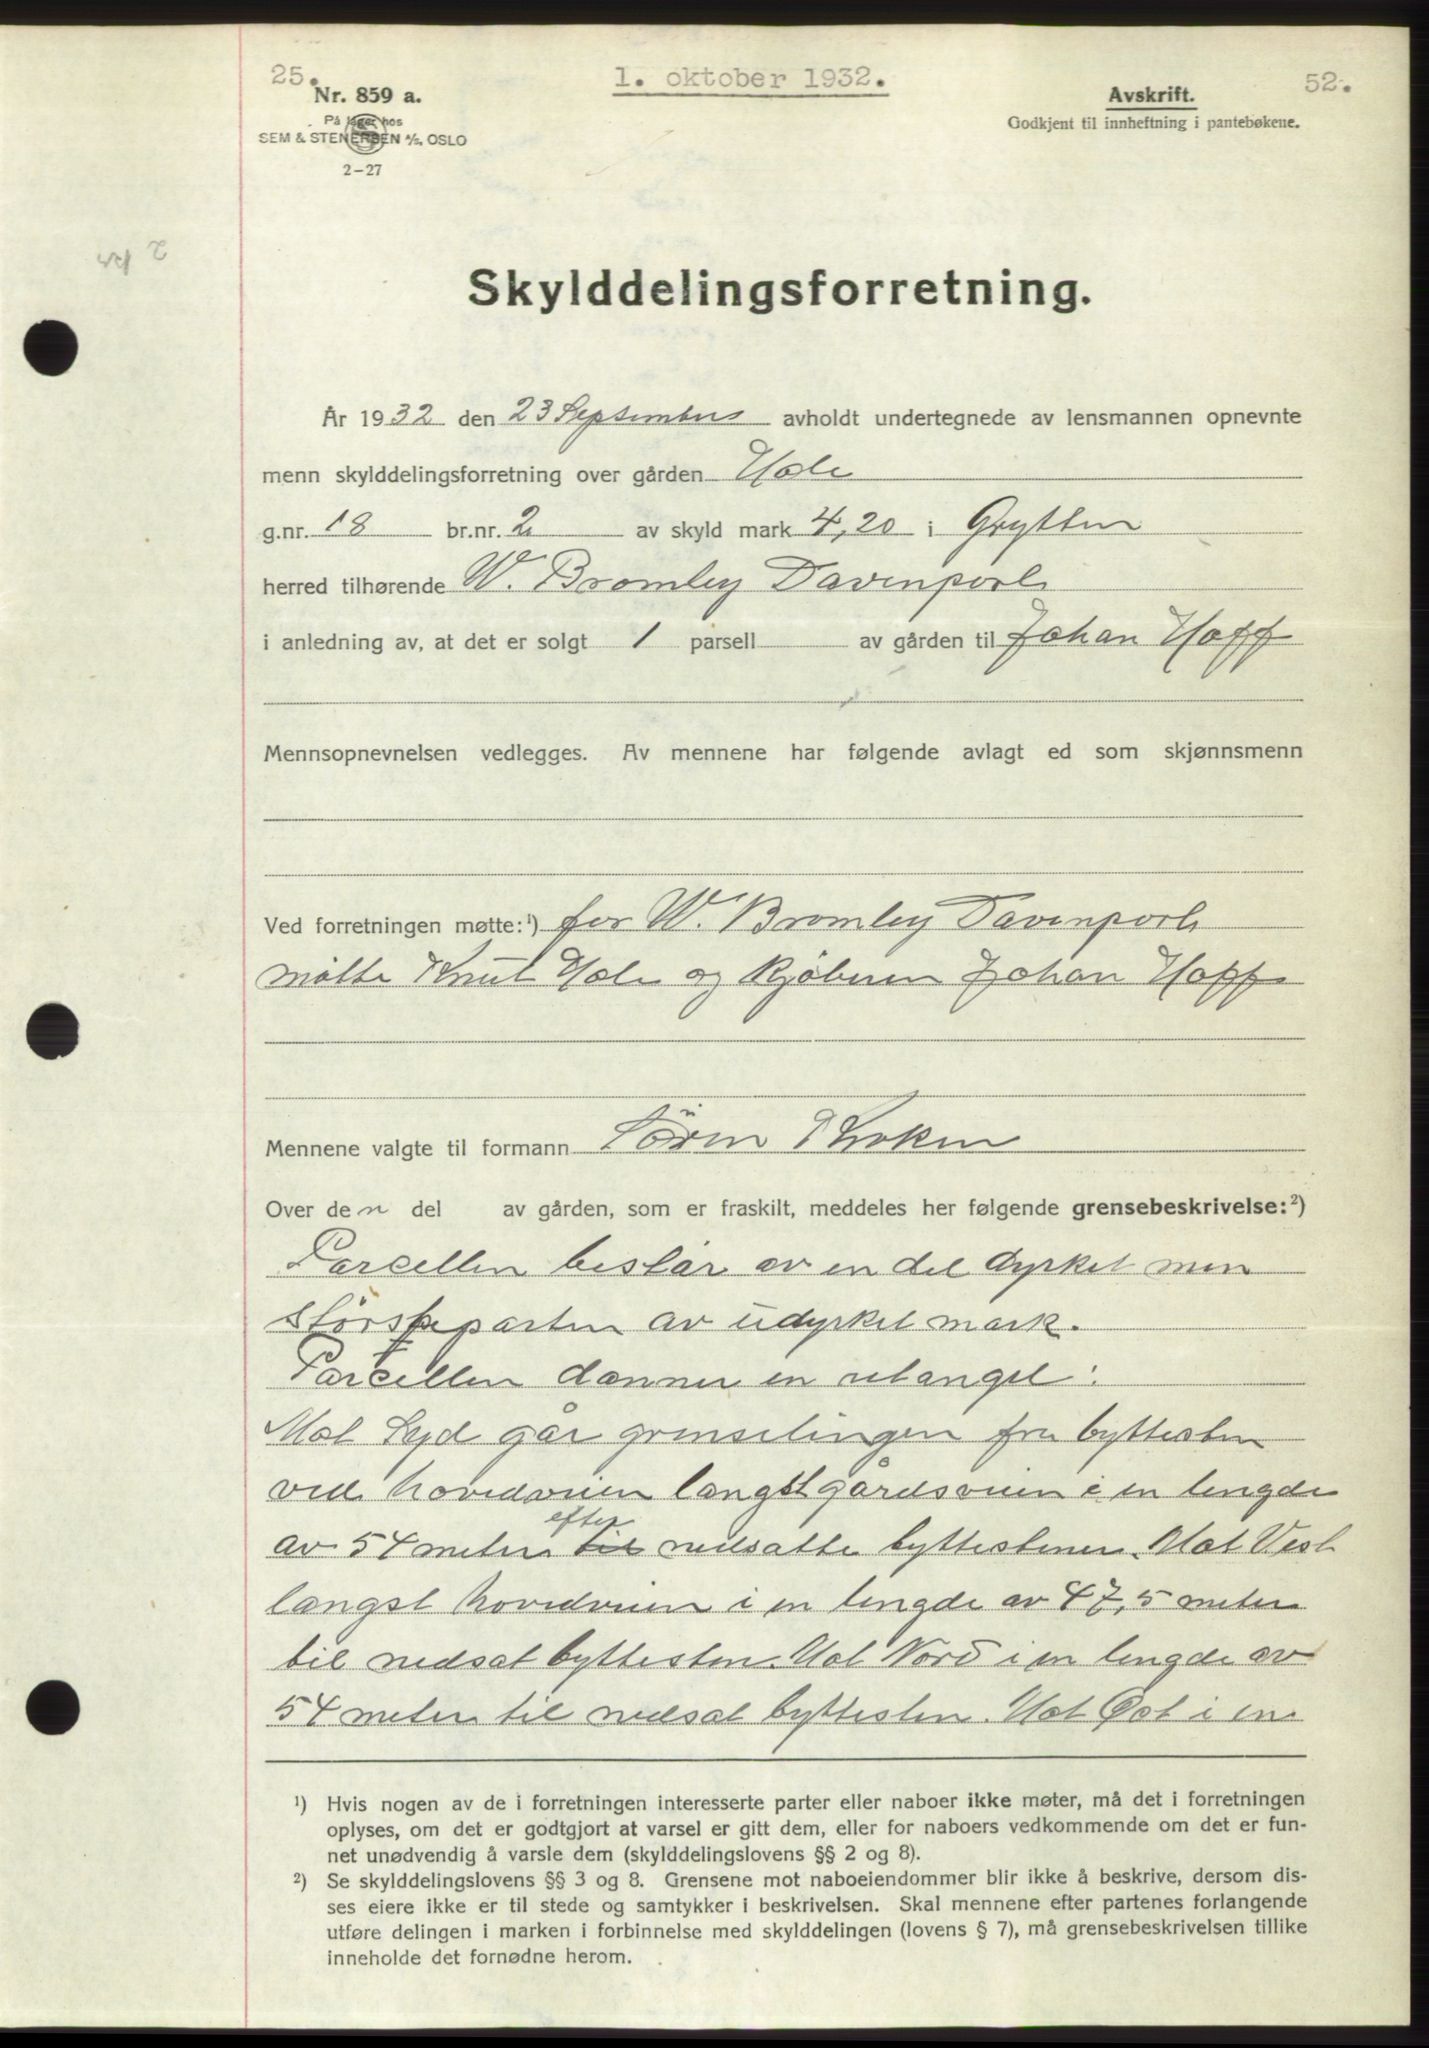 25.
1. oktober 1932.
52.
Nr. 859 a.
På lager hos
SEM & STENERSEN A/S, OSLO
2-27
Avskrift.
Godkjent til innheftning i pantebøkene.
Skylddelingsforretning.
År 1932 den 23 September avholdt undertegnede av lensmannen opnevnte
menn skylddelingsforretning over gården Hole
g.nr. 18 br.nr. 2 av skyld mark 4,20 i Grytten
herred tilhørende W. Bromley Davenport
i anledning av, at det er solgt 1 parsell av gården til Johan Hoff
Mennsopnevnelsen vedlegges. Av mennene har følgende avlagt ed som skjønnsmenn
Ved forretningen møtte:¹) for W. Bromley Davenport
møtte Knut Hole og kjøberen Johan Hoff
Mennene valgte til formann Sören Kroken
Over den del av gården, som er fraskilt, meddeles her følgende grensebeskrivelse:²)
Parcellen består av en del dyrket men
størsteparten av udyrket mark.
Parcellen danner en retangel:
Mot Syd går grenselingen fra byttesten
ved hovedveien langst gårdsveien i en lengde
av 54 meter til efter nedsatte byttestener. Mot Vest
langst hovedveien i en lengde av 47,5 meter
til nedsat byttesten. Mot Nord i en lengde av
54 meter til nedsat byttesten. Mot Øst i en
¹) Hvis nogen av de i forretningen interesserte parter eller naboer ikke møter, må det i forretningen
oplyses, om det er godtgjort at varsel er gitt dem, eller for naboers vedkommende om det er fun-
net unødvendig å varsle dem (skylddelingslovens §§ 2 og 8).
²) Se skylddelingslovens §§ 3 og 8. Grensene mot naboeiendommer blir ikke å beskrive, dersom dis-
ses eiere ikke er til stede og samtykker i beskrivelsen. Skal mennene efter partenes forlangende
utføre delingen i marken i forbinnelse med skylddelingen (lovens § 7), må grensebeskrivelsen tillike
inneholde det fornødne herom.